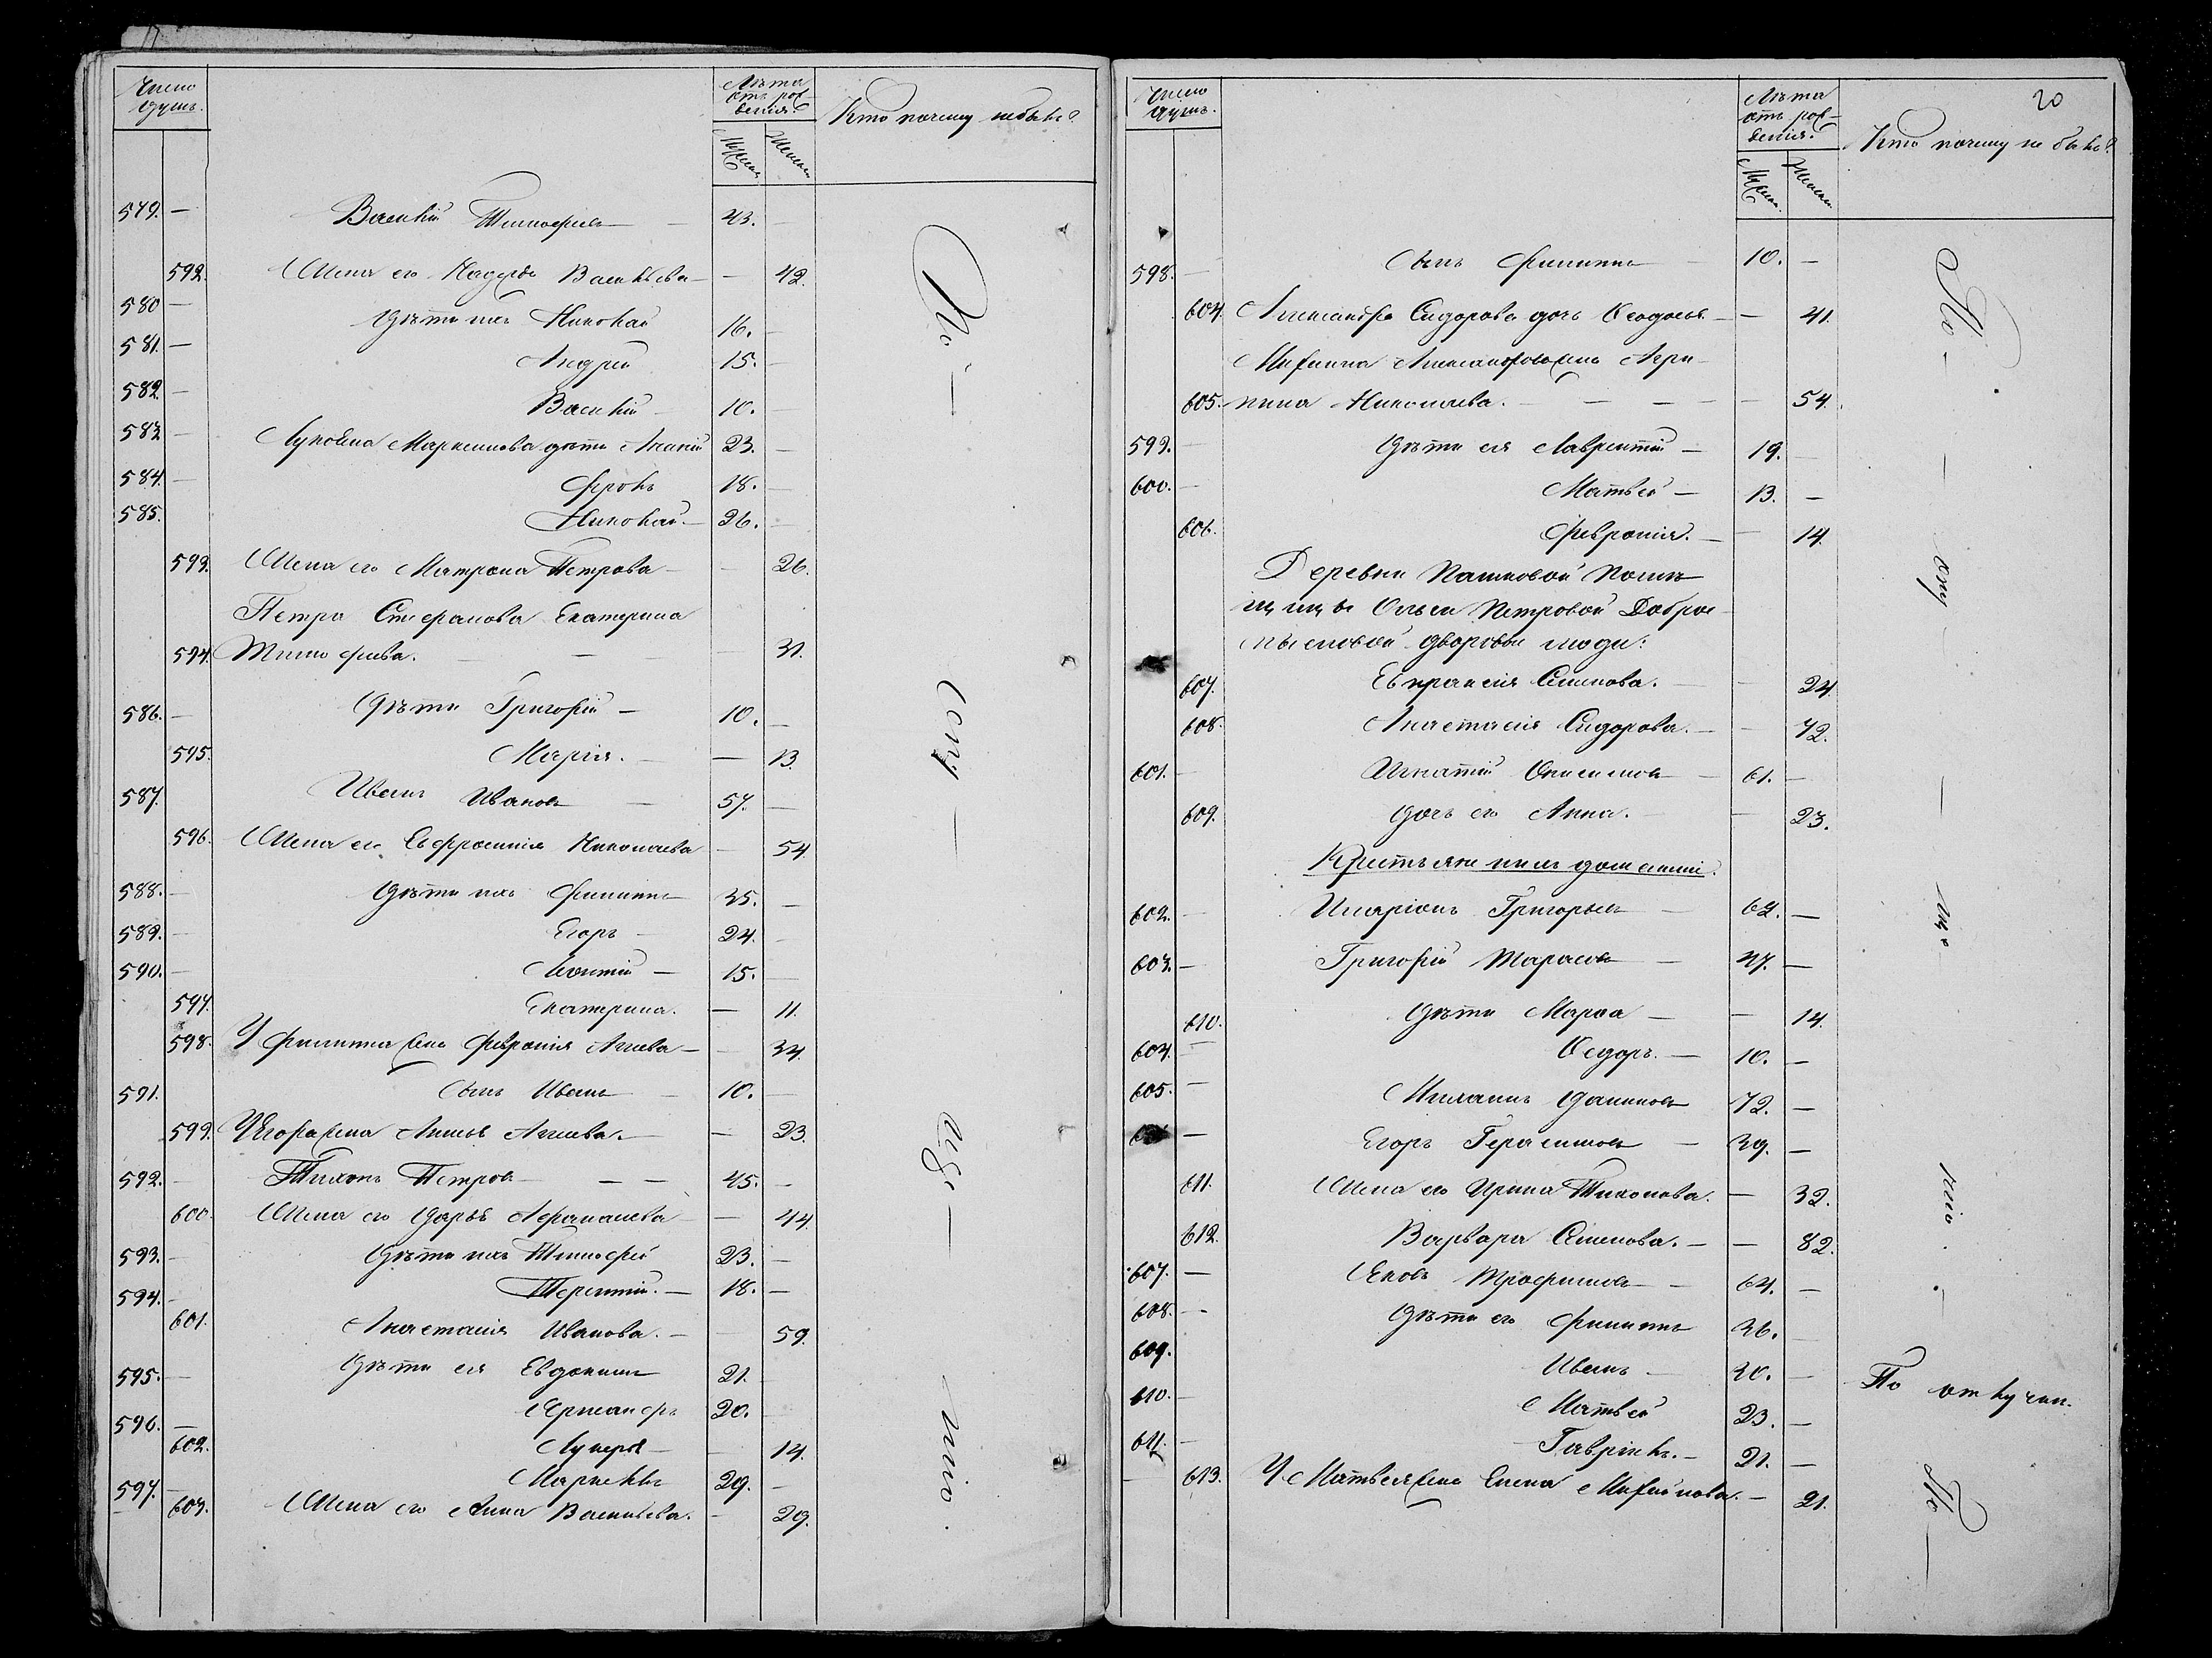 Число душъ.
Лѣта отъ рожденія.
Мужеска
Женска
Кто почему небылъ?
579. — Василій Тимофеевъ — 43. —
592. Жена его Надежда Васильева — — 42.
580 — Дѣти ихъ Николай 16. —
581. — Андрей 15. —
582. — Василій 10.
583. — Лукьяна Маркелова дѣти Акакій 23. —
584. — Фролъ 18. —
585. Николай — 26. —
593. Жена его Матрона Петрова — — 26.
Петра Стефанова Екатерина
594. Тимофеева. — — — 31.
586. — Дѣти Григорій — 10. —
595. Марія. — — 13.
587. Иванъ Ивановъ — 57. —
596. Жена его Евфросинія Николаева — 54.
588. — Дѣти ихъ Филиппъ 35. —
589. — Егоръ — 24. —
590. — Леонтій — 15. —
597. Екатерина. — 11.
598. У Филиппа жена Февронія Агиева — — 34.
591. Сынъ Иванъ — 10. —
599. У Егора жена Анисья Агиева. — — 23.
592. — Тихонъ Петровъ — — — 45. —
600. Жена его Дарья Афанасьева — 44.
593. — Дѣти ихъ Тимофей 23. —
594. — Терентій. — 18. —
601. Анастасія Иванова. — — 59.
595. — Дѣти ея Евдокимъ 21. —
596. — Александръ 20. —
602. Лукерья — — 14.
597. — Маркеллъ 29. —
603. Жена его Анна Васильева. — 29.
По —
опу —
ще —
нію.
20
Число душъ.
Лѣта отъ рожденія.
Мужеска.
Женска.
Кто почему не былъ?
598. — Сынъ Филиппъ — 10. —
604. Александра Сидорова дочь Ѳеодосья — — 41.
Михаила Александрова жена Агри-
605. пина Николаева. — — — — 54.
599. — Дѣти ея Лаврентій — 19. —
600. — Матвей — 13. —
606. Февронія. — — 14.
Деревни Пашковой помѣ-
щицы Ольги Петровой Доброс-
мысловой дворовые люди:
607. Евпраксія Семенова. — — 24.
608. Анастасія Сидорова. — — 72.
601. — Игнатій Онисимовъ — 61. —
609. Дочь его Анна. — — 23.
Крестьяне ихъ домашніи:
602. — Иларіонъ Григорьевъ — 62. —
603. — Григорій Тарасовъ — 47. —
610. Дѣти Марѳа — — 14.
604. — Ѳедоръ. — 10. —
605. — Даниловъ 72. —
— Егоръ Герасимовъ — 39. —
611. Жена его Ирина Тихонова. — 32.
612. Варвара Семенова. — — 82.
607. — Яковъ Трофимовъ — — 64. —
608. — Дѣти его Филиппъ 36. —
609. Иванъ — 30. —
610. — Матвей 23. —
611. — Гавріилъ. — 21. —
613. У Матвея жена Елена Михайлова. — 21.
По —
опу —
ще
нію.
По отлучки.
По —